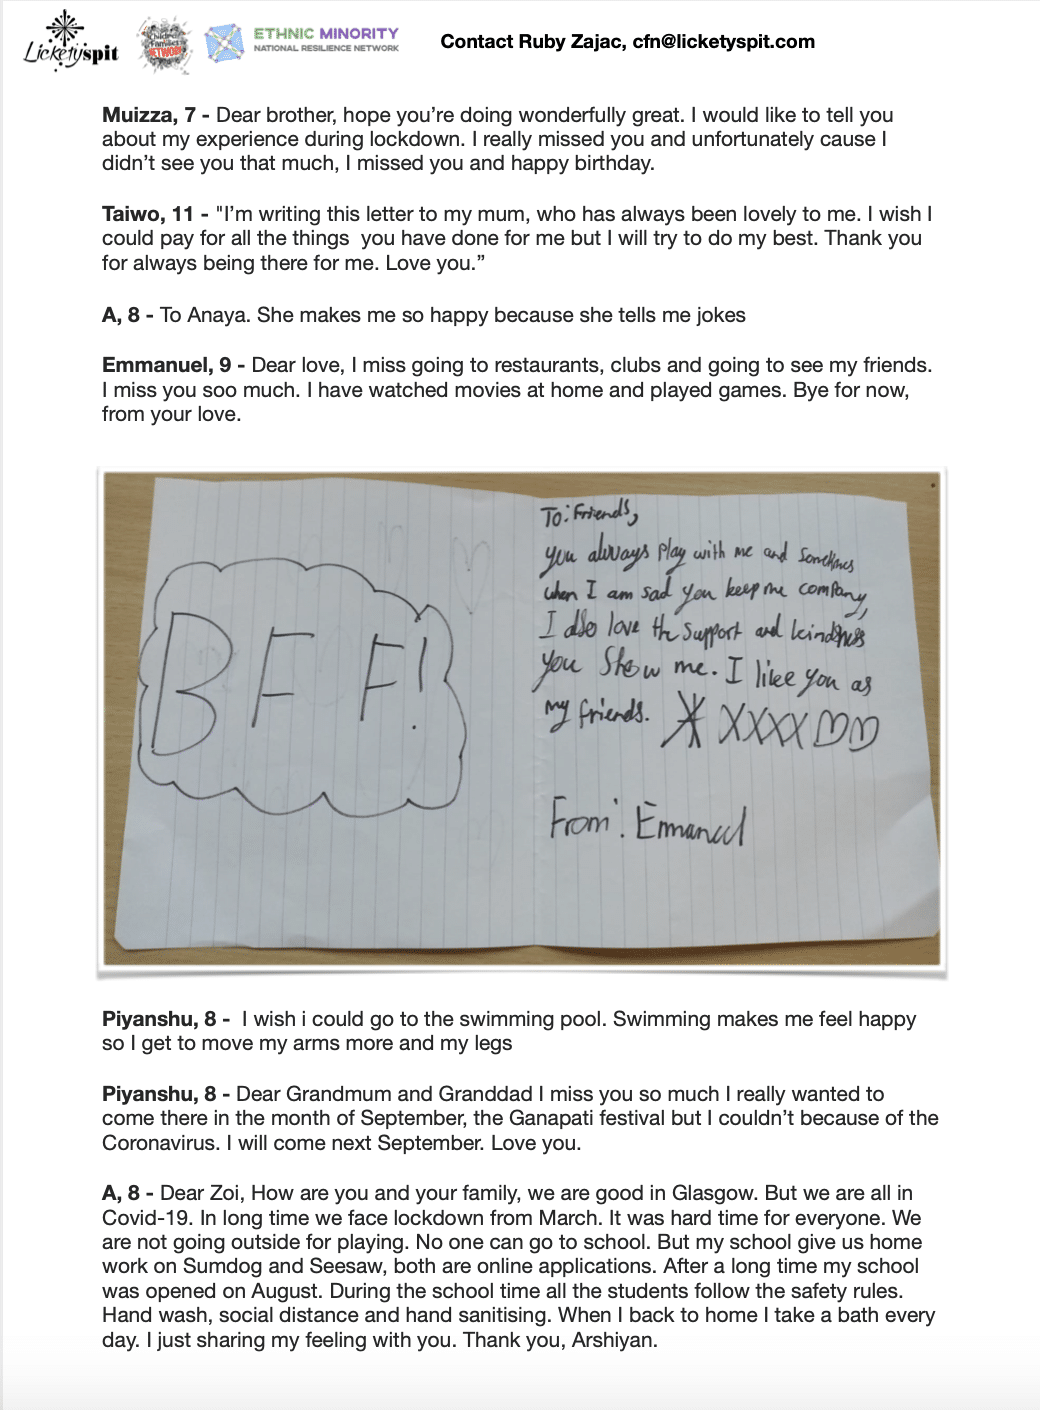 Licketyspit
Children's
Families
NETWORK
ETHNIC MINORITY
NATIONAL RESILIENCE NETWORK
Contact Ruby Zajac, cfn@licketyspit.com
Muizza, 7 - Dear brother, hope you’re doing wonderfully great. I would like to tell you
about my experience during lockdown. I really missed you and unfortunately cause I
didn’t see you that much, I missed you and happy birthday.
Taiwo, 11 - "I’m writing this letter to my mum, who has always been lovely to me. I wish I
could pay for all the things  you have done for me but I will try to do my best. Thank you
for always being there for me. Love you.”
A, 8 - To Anaya. She makes me so happy because she tells me jokes
Emmanuel, 9 - Dear love, I miss going to restaurants, clubs and going to see my friends.
I miss you soo much. I have watched movies at home and played games. Bye for now,
from your love.
BFF!
To: Friends,
you always play with me and sometimes
when I am sad you keep me company,
I also love the support and kindness
you show me. I like you as
my friends. XXXX
From: Emmanuel
Piyanshu, 8 -  I wish i could go to the swimming pool. Swimming makes me feel happy
so I get to move my arms more and my legs
Piyanshu, 8 - Dear Grandmum and Granddad I miss you so much I really wanted to
come there in the month of September, the Ganapati festival but I couldn’t because of the
Coronavirus. I will come next September. Love you.
A, 8 - Dear Zoi, How are you and your family, we are good in Glasgow. But we are all in
Covid-19. In long time we face lockdown from March. It was hard time for everyone. We
are not going outside for playing. No one can go to school. But my school give us home
work on Sumdog and Seesaw, both are online applications. After a long time my school
was opened on August. During the school time all the students follow the safety rules.
Hand wash, social distance and hand sanitising. When I back to home I take a bath every
day. I just sharing my feeling with you. Thank you, Arshiyan.